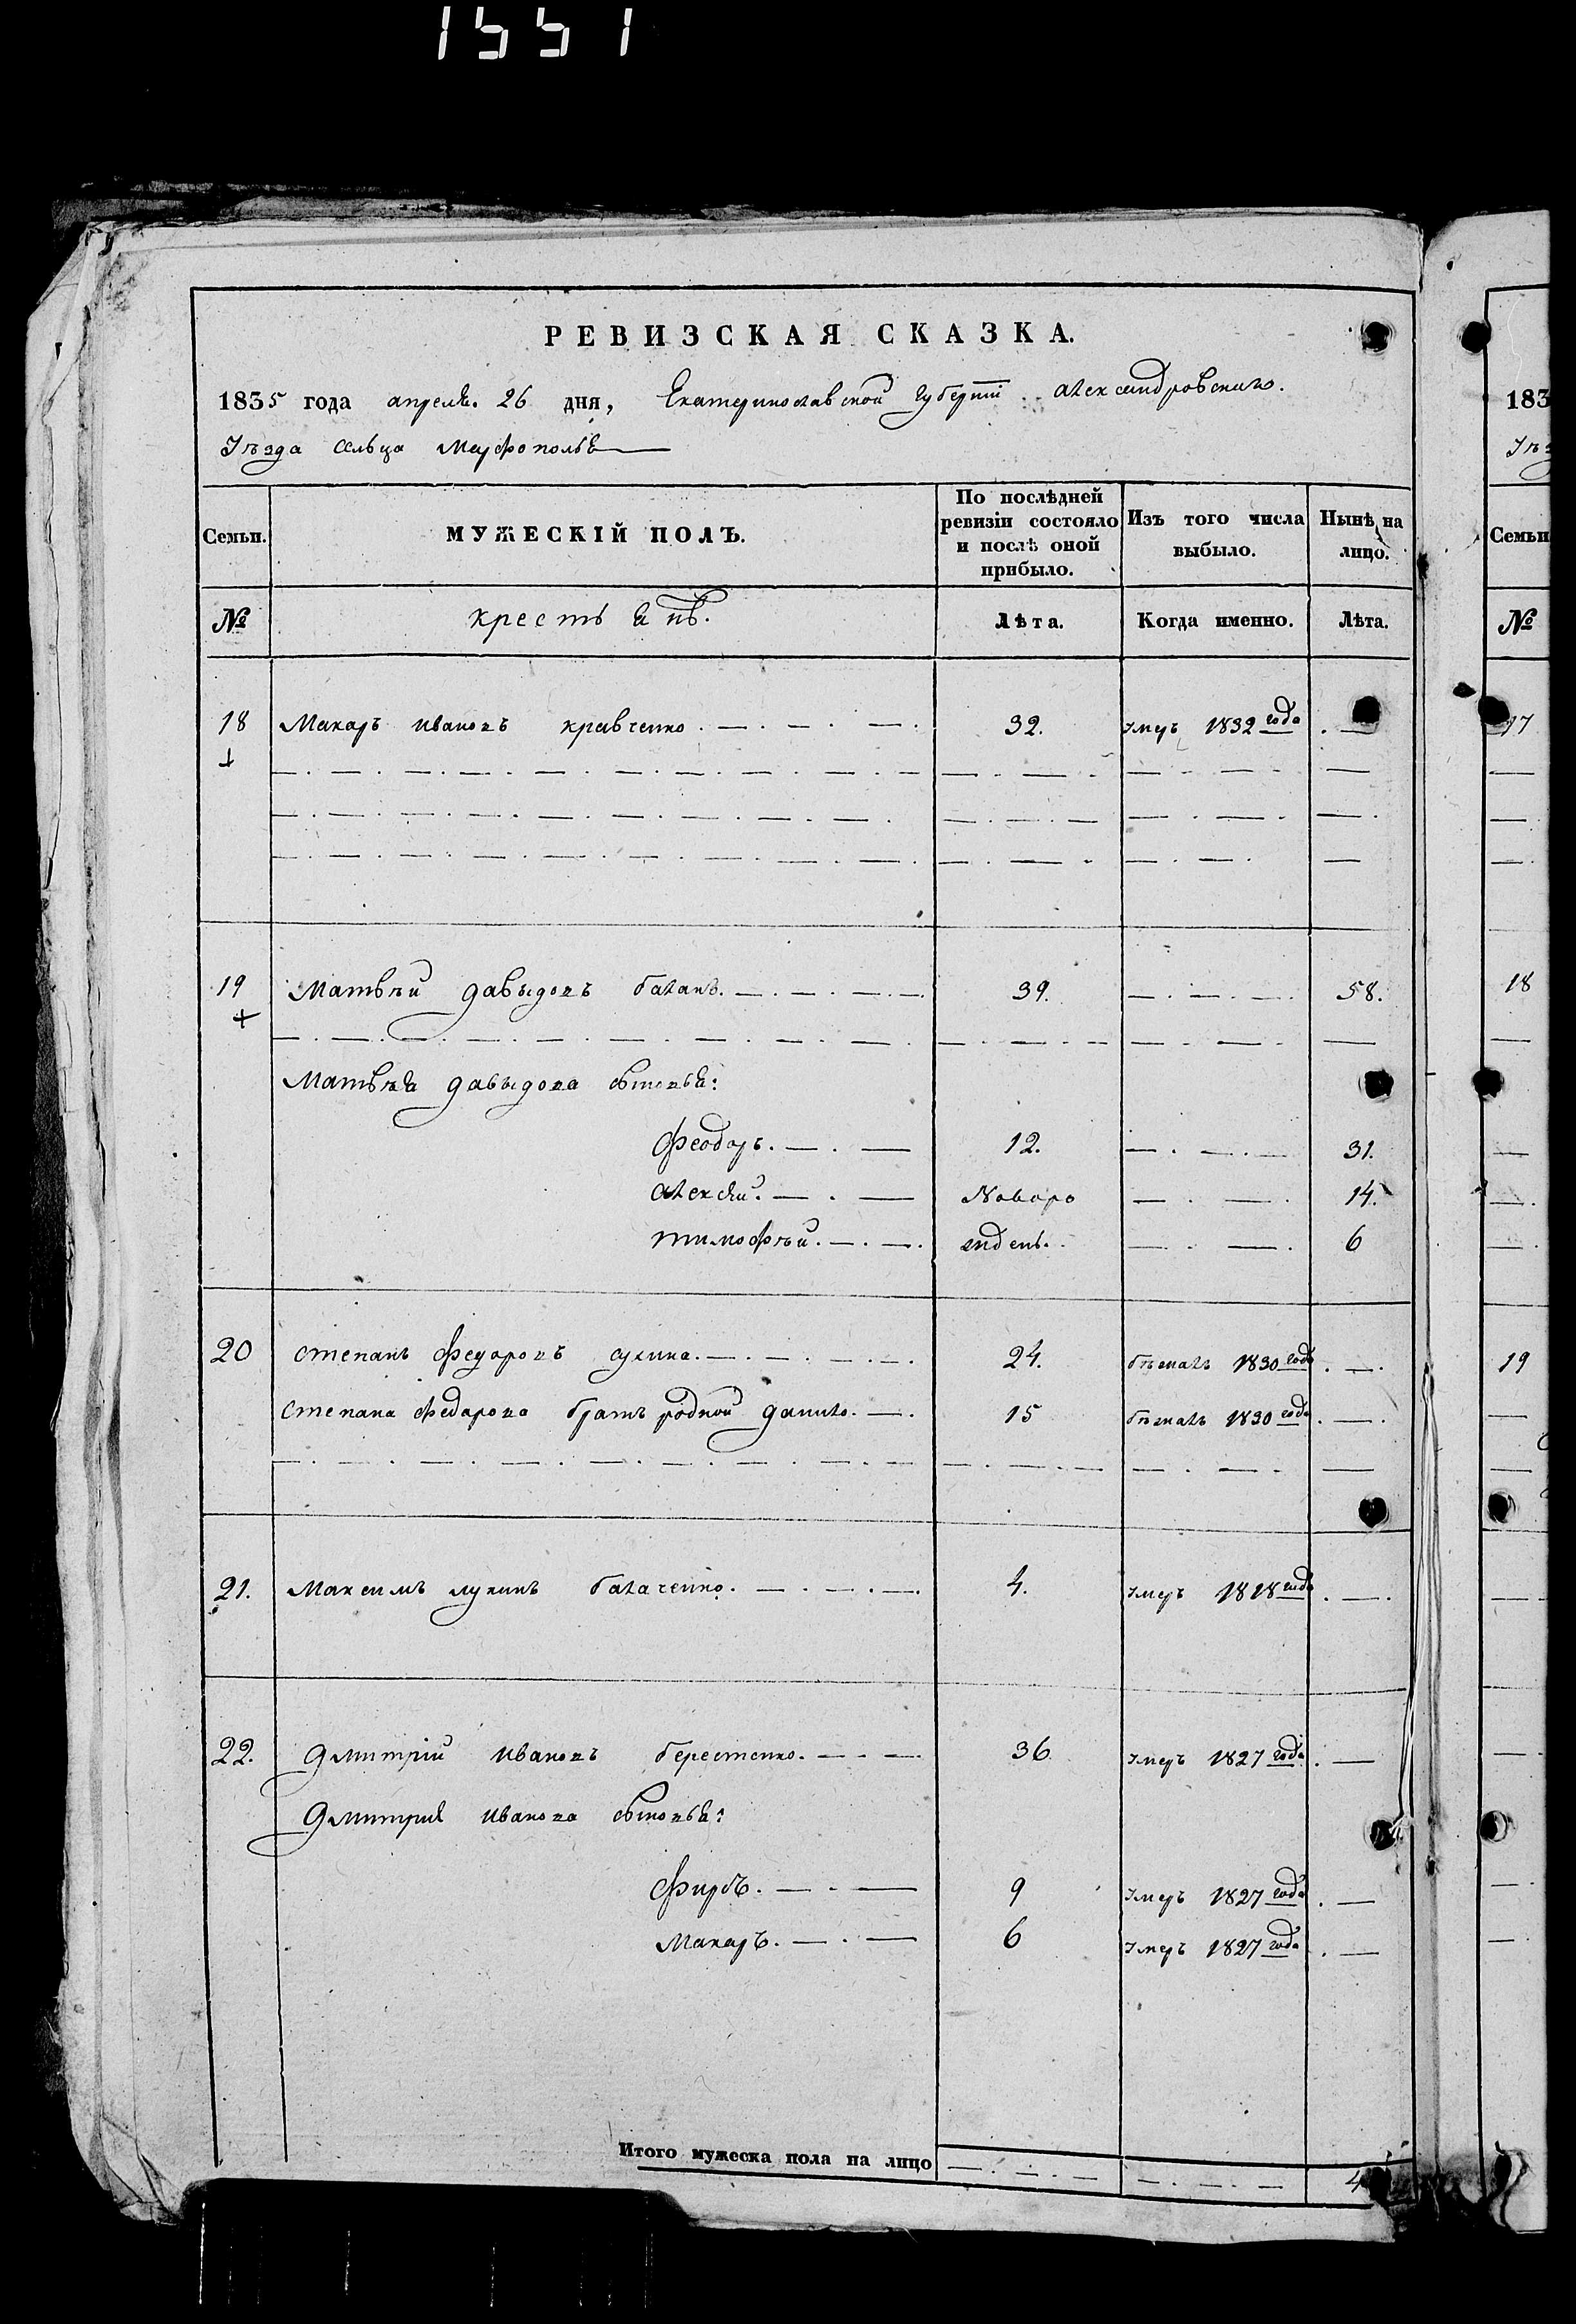 1551
РЕВИЗСКАЯ СКАЗКА.
1835 года апреля. 26 дня, Екатеринославской губернiи Александровскаго.
Уѣзда сельца Марфополья
Семьи. МУЖЕСКІЙ ПОЛЪ. По послѣдней ревизіи состояло и послѣ оной прибыло. Изъ того числа выбыло. Нынѣ на лицо.
№ крестьянъ. Лѣта. Когда именно. Лѣта.
18 Макаръ Ивановъ Кравченко. 32. умеръ 1832 года
19 Матвѣй Давыдовъ Балакъ. 39. 58.
Матвѣя Давыдова сыновья:
Феодоръ. 12. 31.
Алексѣй. Новоро 14.
Тимофѣй. ждень. 6
20 Степанъ Федоровъ Сухина. 24. бѣжалъ 1830 года
Степана Федорова братъ родной Данило. 15 бѣжалъ 1830 года
21. Максимъ Лукинъ Балаченко. 4. умеръ 1818 года
22. Дмитрій Ивановъ Берестенко. 36. умеръ 1827 года
Дмитрия Иванова сыновья:
Фирсъ. 9 умеръ 1827 года
Макаръ. 6 умеръ 1827 года
Итого мужеска пола на лицо 4
183
Уѣз
Семьи
№
17
18
19